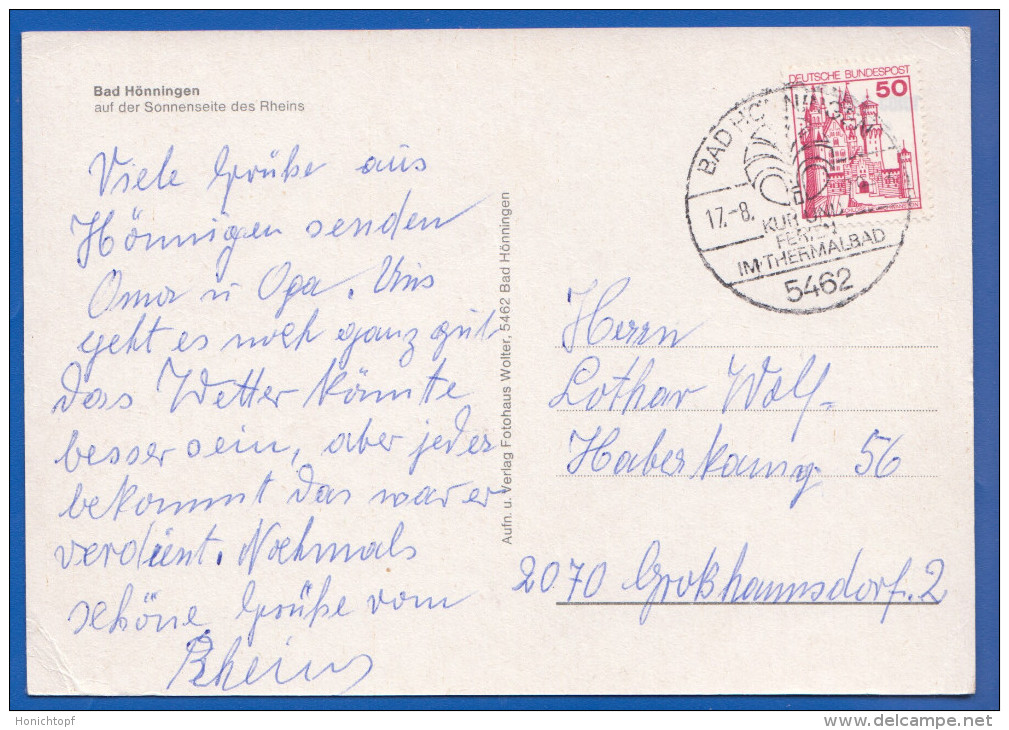 Bad Hönningen
auf der Sonnenseite des Rheins
Viele Grüße aus
Hönnigen senden
Oma u Opa. Uns
geht es noch ganz gut.
das Wetter könnte
besser sein, aber jeder
bekommt das was er
verdient. Nochmals
schöne Grüße vom
Rhein
Aufn. u. Verlag Fotohaus Wolter, 5462 Bad Hönningen
DEUTSCHE BUNDESPOST
50
BAD HÖNNINGEN
17.-8.
KUR UND
FERIEN
IM THERMALBAD
5462
Herrn
Lothar Wolf
Haberkamp 56
2070 Großhansdorf. 2
Honichtopf
delcampe.net